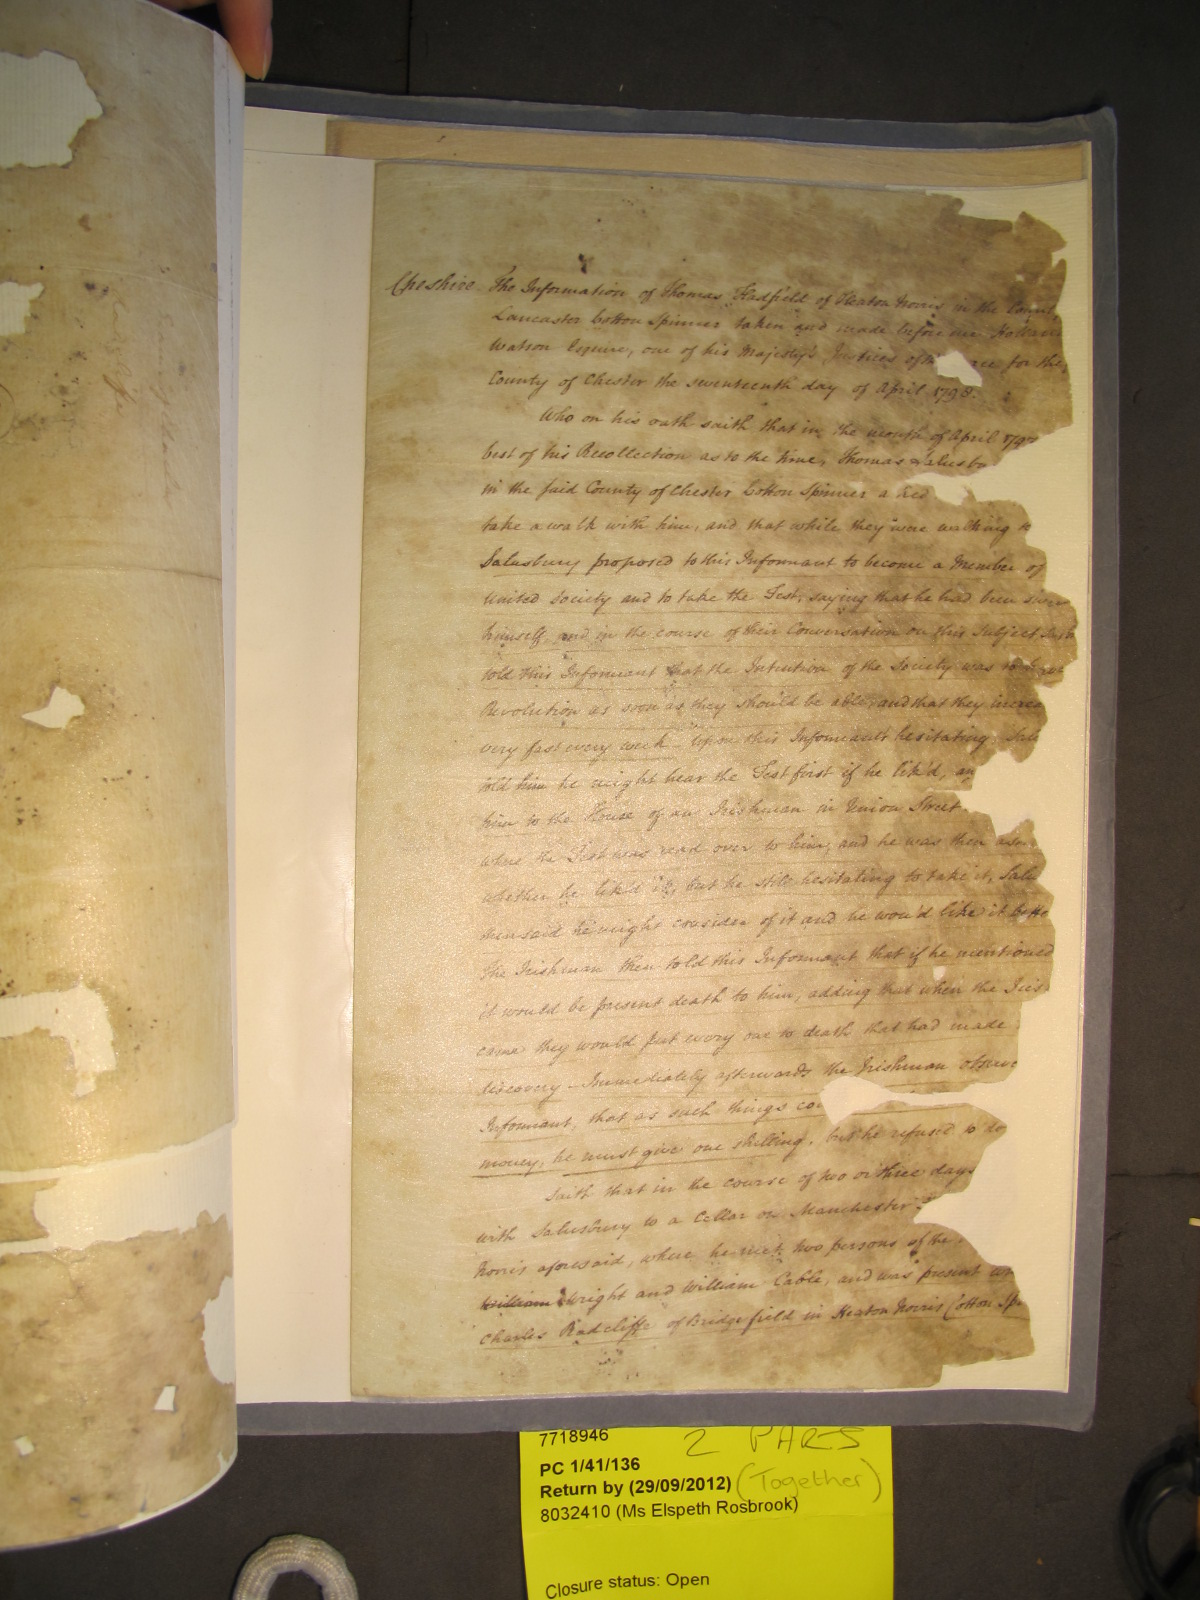 Cheshire The Information of Thomas Hadfield of Heaton Norris in the County
Lancaster Cotton Spinner taken and made before me Holland
Watson Esquire, one of his Majesty's Justices of for the
County of Chester the seventeenth day of April 1798.
Who on his oath saith that in the month of April 1797
best of his Recollection as to the time, Thomas Salusb
in the said County of Chester Cotton Spinner
take a walk with him, and that while they were walking to
Salusbury proposed to this Informant to become a Member of
United Society and to take the Test, saying that he had been sworn
himself, and in the course of their Conversation on this Subject
told this Informant that the Intention of the Society was to
Revolution as soon as they should be able, and that they increa
very fast every week Upon this Informant's hesitating, Salu
told him he might hear the Test first if he lik'd, an
him to the House of an Irishman in Union Street
where the Test was read over to him, and he was then
whether he lik'd it, but he still hesitating to take it, Salu
then said he might consider of it and he wou'd like it bette
The Irishman then told this Informant that if he mentioned
it would be present death to him, adding that when the
came they would put every one to death that had made
discovery Immediately afterwards the Irishman observ
Informant, that as such things co
money, he must give one shilling, but he refused to do
Saith that in the course of two or three days
with Salusbury to a Cellar on Manchester
Norris aforesaid, where he met two persons of the
William Wright and William Cable, and was present
Charles Radcliffe of Bridgefield in Heaton Norris Cotton Spi
7718946
2 PARTS
PC 1/41/136
Return by (29/09/2012) (Together)
8032410 (Ms Elspeth Rosbrook)
Closure status: Open